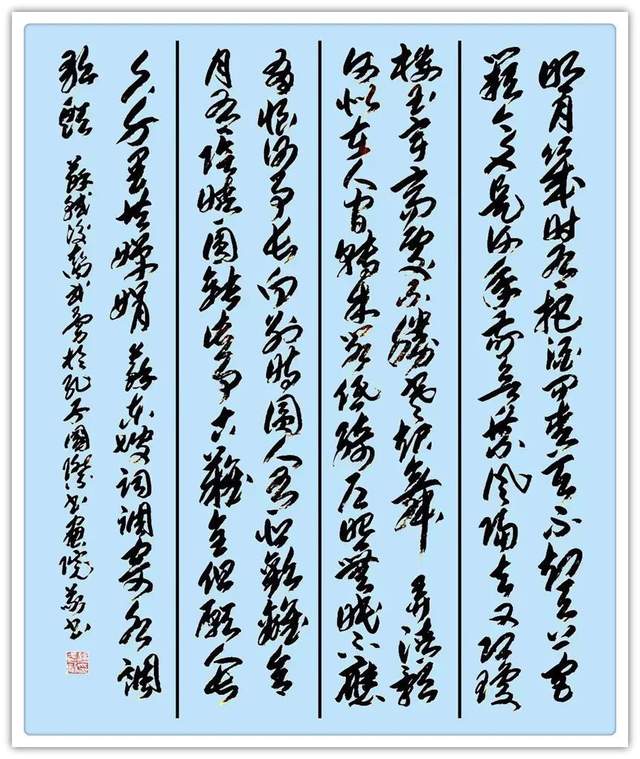 明月幾時有把酒問青天不知天上宮
闕今夕是何年我欲乘風歸去又恐瓊
樓玉宇高處不勝寒起舞弄清影
何似在人間轉朱閣低綺戶照無眠不應
有恨何事長向別時圓人有悲歡離合
月有陰晴圓缺此事古難全但願人長
久千里共嬋娟 蘇東坡詞調寄水調
歌頭 於孔子國際書畫院